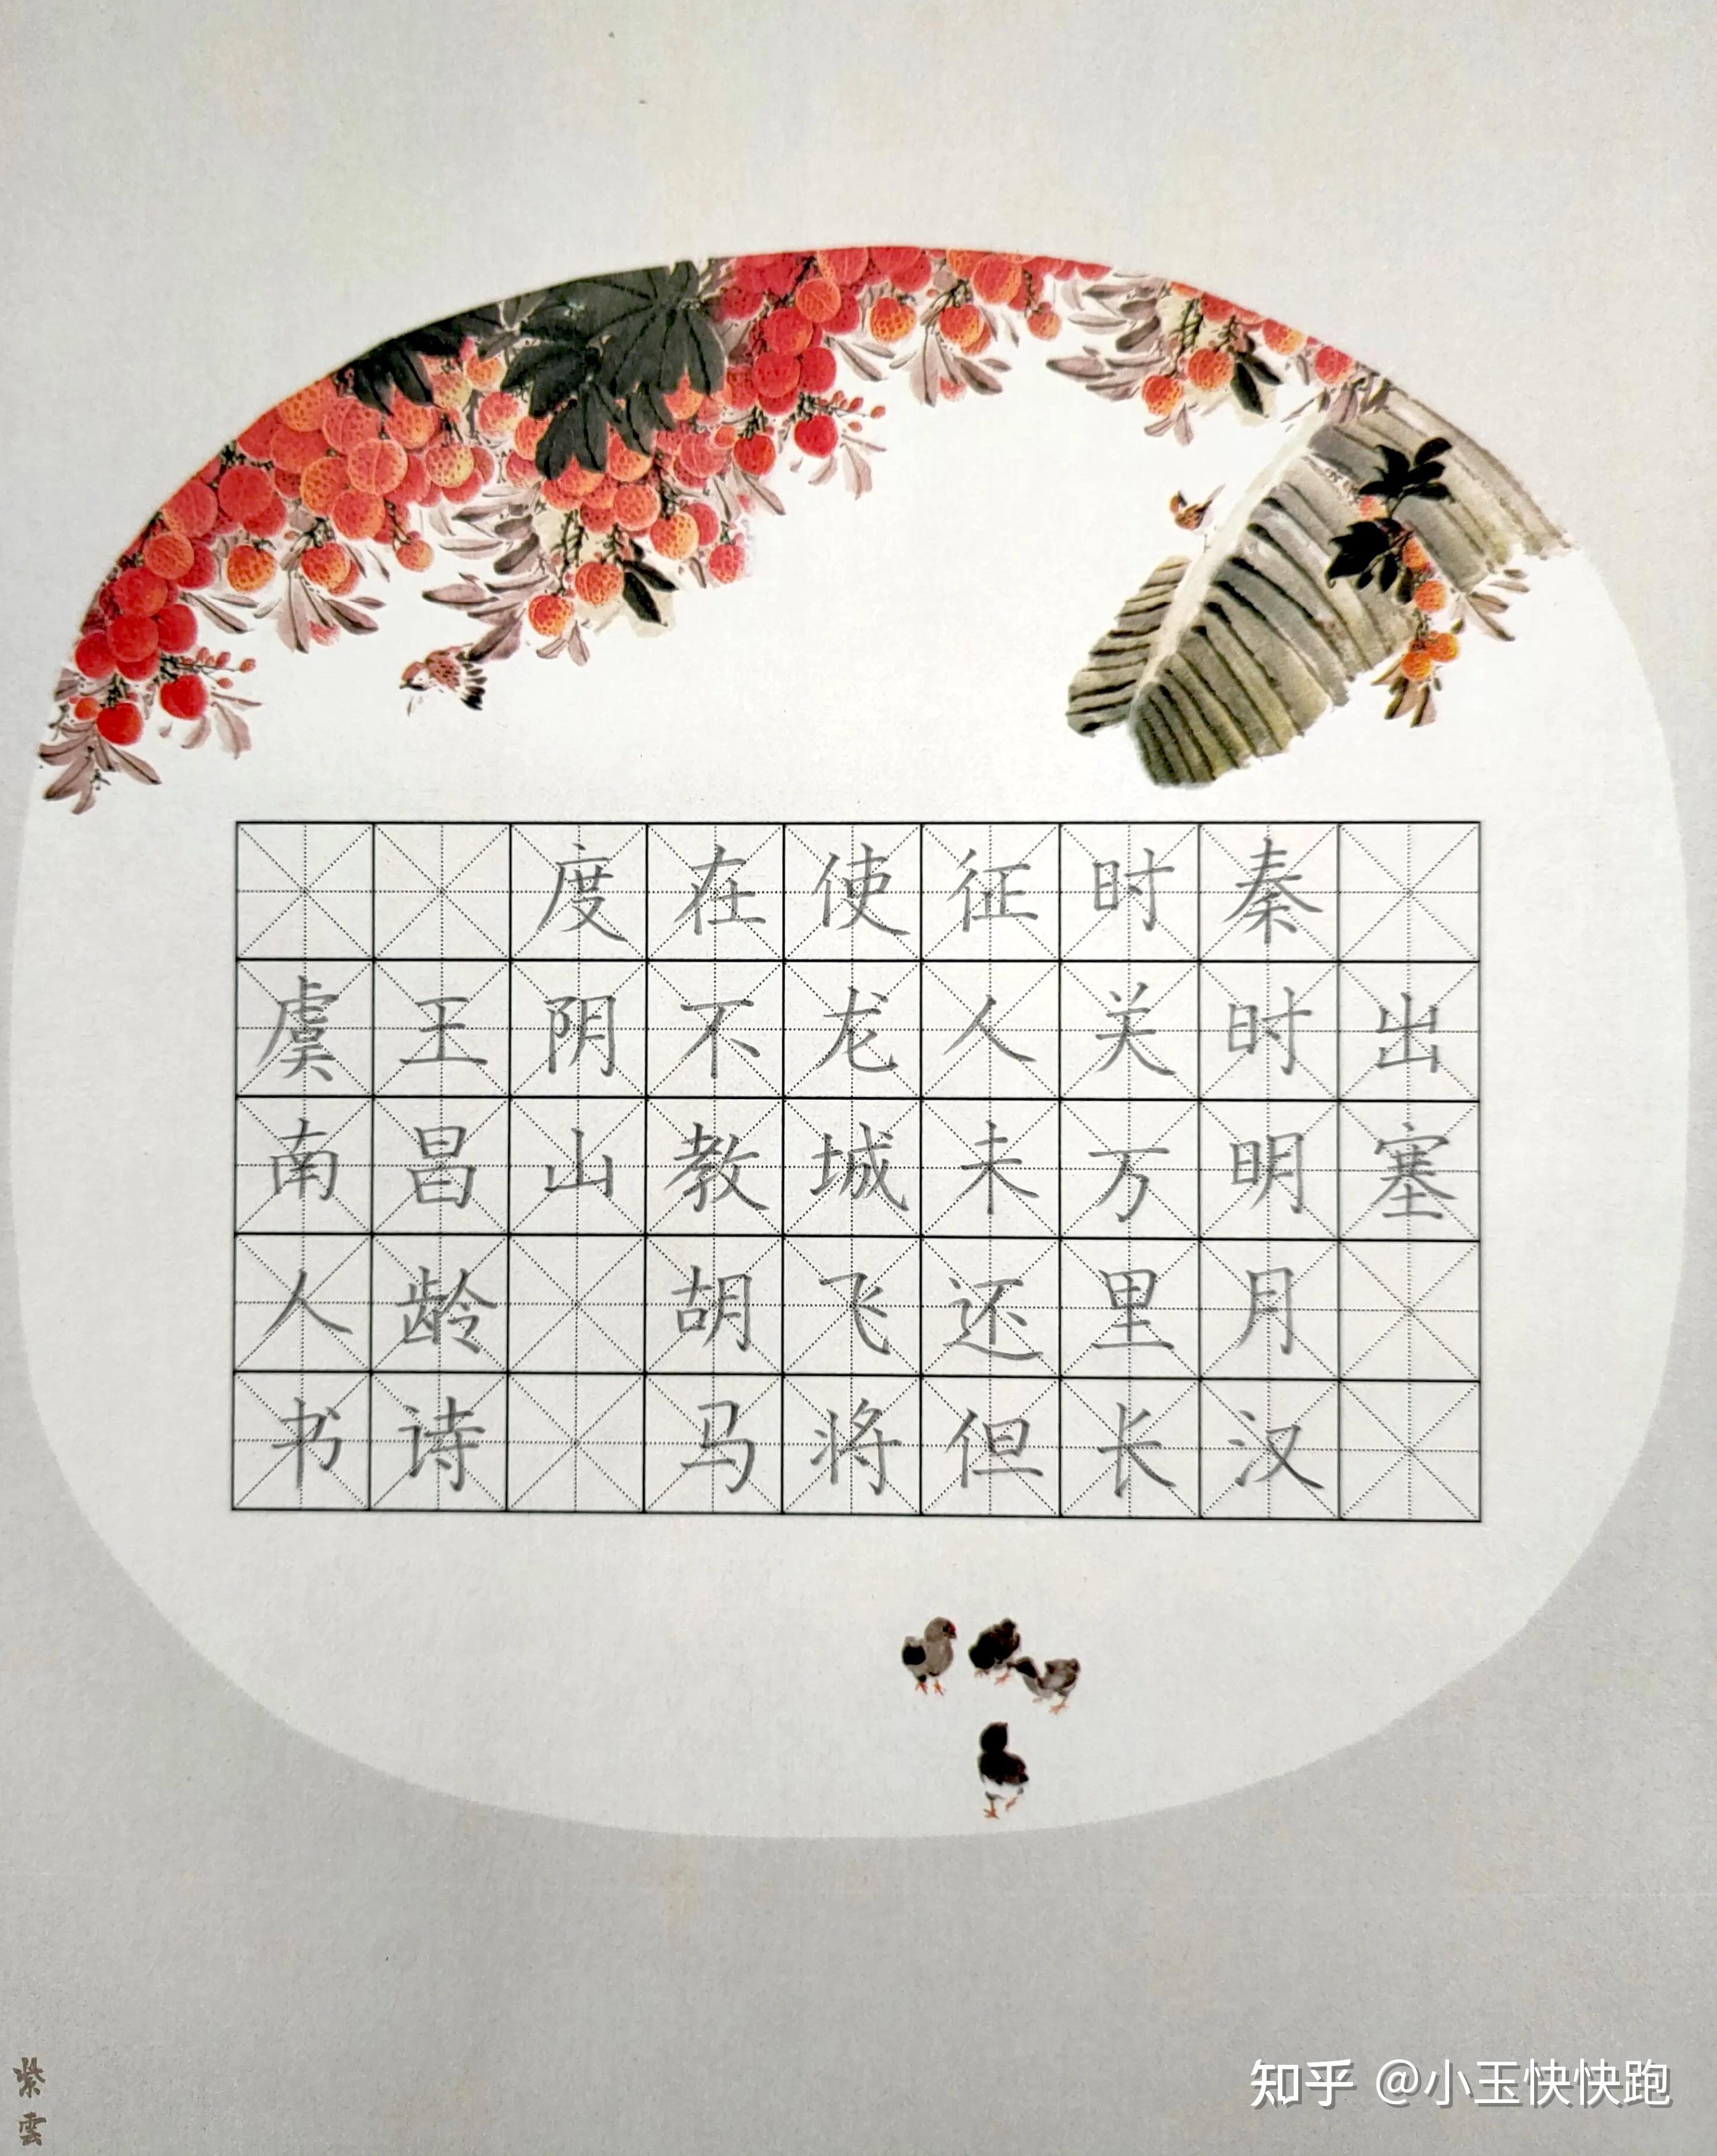 出塞
秦时明月汉
时关万里长
征人未还但
使龙城飞将
在不教胡马
度阴山
王昌龄诗
虞南人书
紫雲
知乎 @小玉快快跑